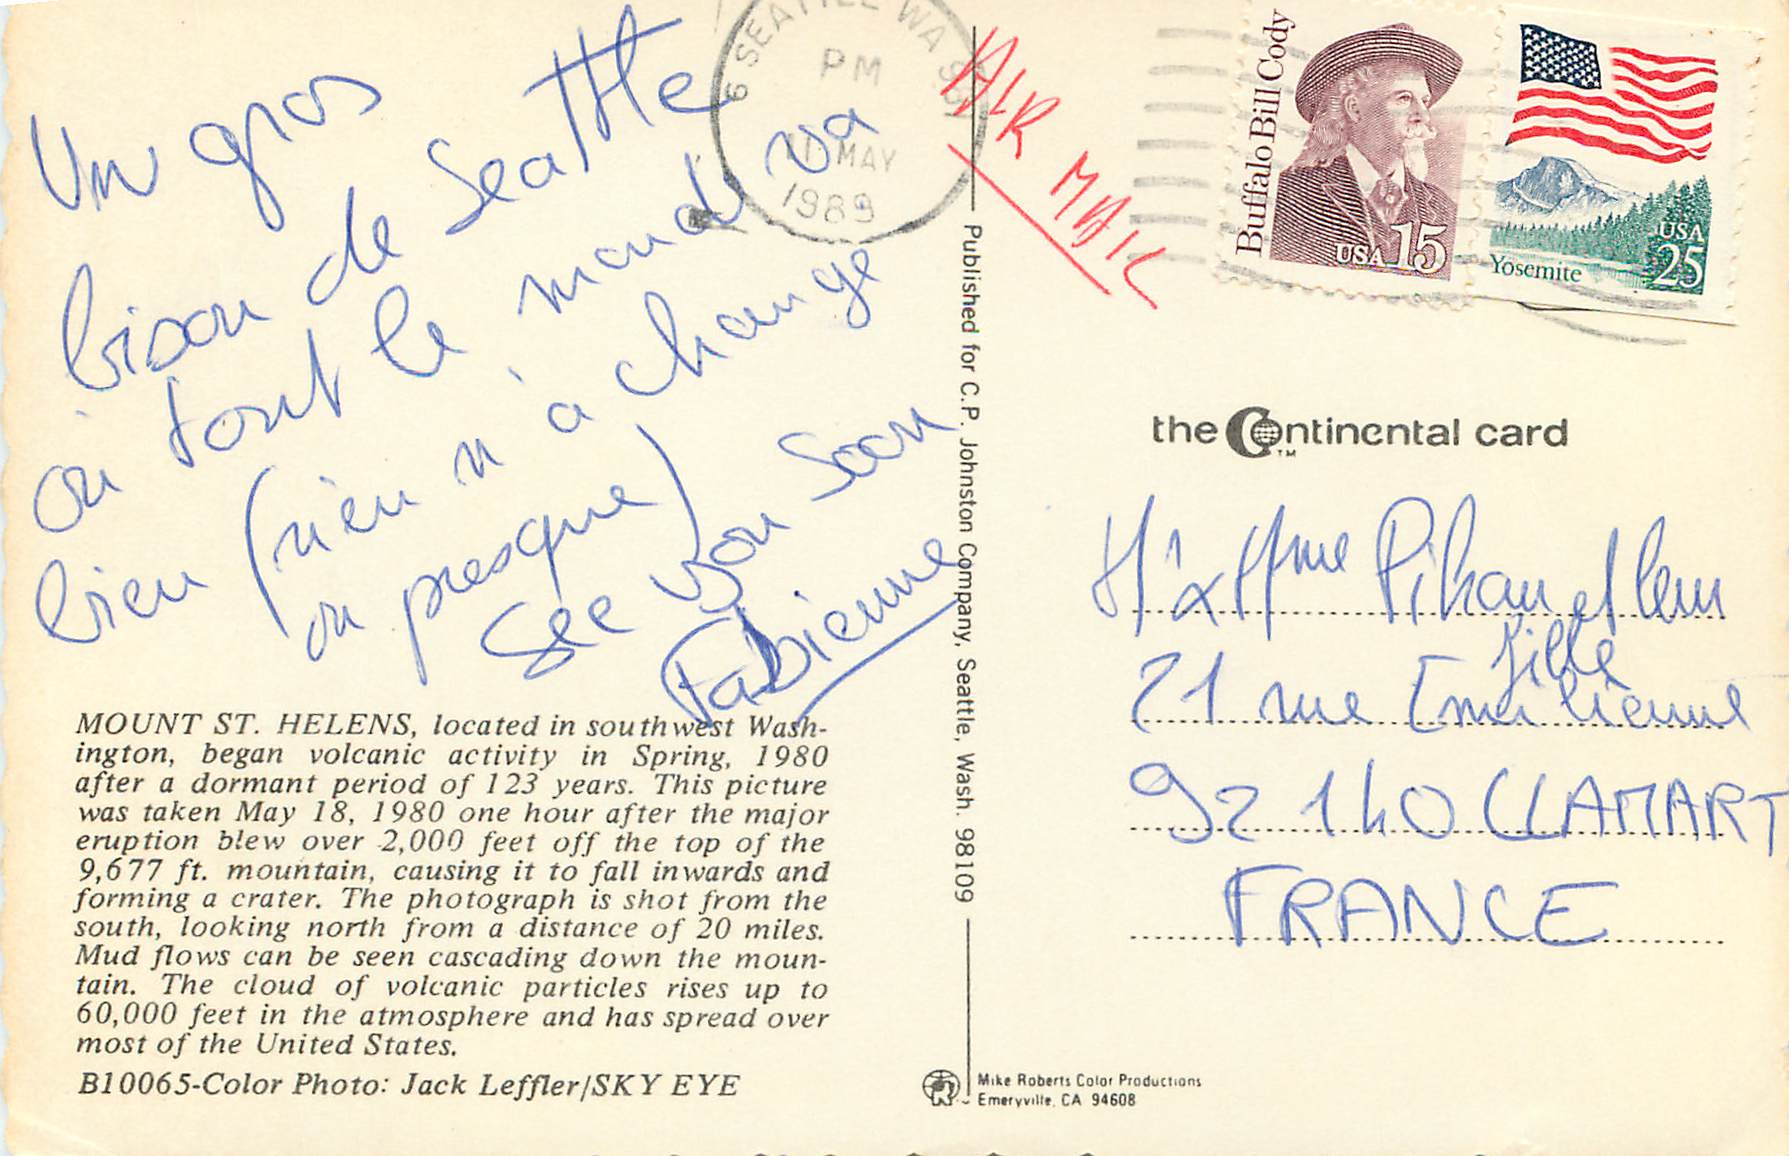 Un gros
bison de Seattle
où tout le monde va
bien (rien n'a changé
ou presque)
See you Soon
Fabienne
MOUNT ST. HELENS, located in southwest Wash-
ington, began volcanic activity in Spring, 1980
after a dormant period of 123 years. This picture
was taken May 18, 1980 one hour after the major
eruption blew over 2,000 feet off the top of the
9,677 ft. mountain, causing it to fall inwards and
forming a crater. The photograph is shot from the
south, looking north from a distance of 20 miles.
Mud flows can be seen cascading down the moun-
tain. The cloud of volcanic particles rises up to
60,000 feet in the atmosphere and has spread over
most of the United States.
B10065-Color Photo: Jack Leffler/SKY EYE
SEATTLE WA
PM
MAY
1989
AIR MAIL
Published for C.P. Johnston Company, Seattle, Wash. 98109
Buffalo Bill Cody
USA 15
Yosemite
USA
25
the Continental card
TM
et leur
fille
21 rue Emilienne
92140 CLAMART
FRANCE
Mike Roberts Color Productions
Emeryville, CA 94608